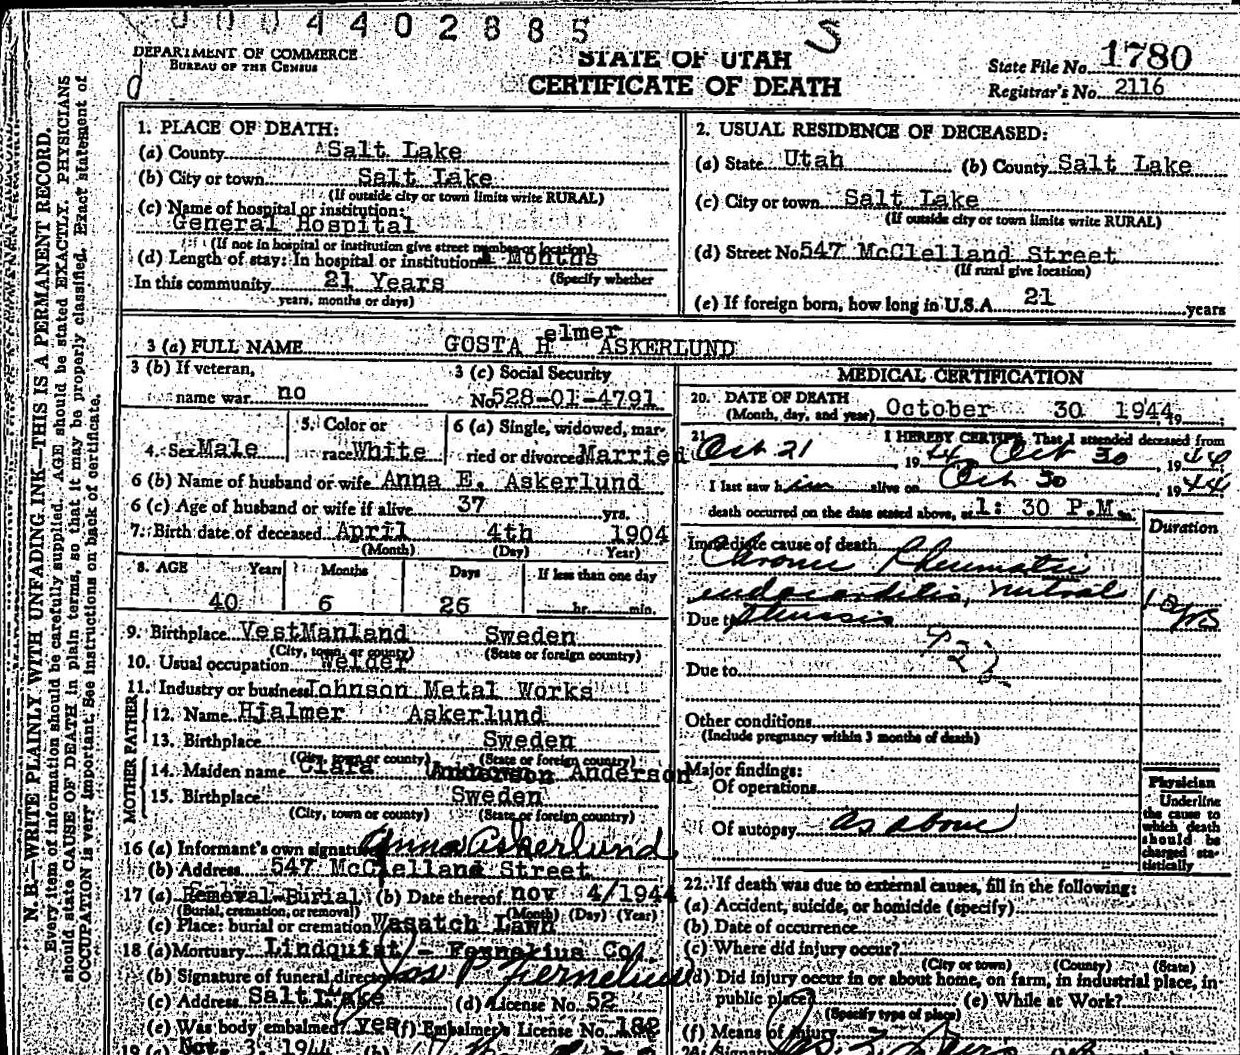 0004402885 S
DEPARTMENT OF COMMERCE
BUREAU OF THE CENSUS
d
STATE OF UTAH
CERTIFICATE OF DEATH
State File No. 1780
Registrar's No. 2116
N. B.—WRITE PLAINLY WITH UNFADING INK—THIS IS A PERMANENT RECORD.
Every item of information should be carefully supplied. AGE should be stated EXACTLY. PHYSICIANS
should state CAUSE OF DEATH in plain terms, so that it may be properly classified. Exact statement of
OCCUPATION is very important. See instructions on back of certificate.
1. PLACE OF DEATH:
(a) County Salt Lake
(b) City or town Salt Lake
(If outside city or town limits write RURAL)
(c) Name of hospital or institution:
General Hospital
(If not in hospital or institution give street number or location)
(d) Length of stay: In hospital or institution Months
(Specify whether
In this community 21 Years
years, months or days)
2. USUAL RESIDENCE OF DECEASED:
(a) State Utah (b) County Salt Lake
(c) City or town Salt Lake
(If outside city or town limits write RURAL)
(d) Street No. 547 McClelland Street
(If rural give location)
(e) If foreign born, how long in U.S.A. 21 years
elmer
3 (a) FULL NAME GOSTA H ASKERLUND
3 (b) If veteran,
name war no
3 (c) Social Security
No. 528-01-4791
4. Sex Male
5. Color or
race White
6 (a) Single, widowed, mar-
ried or divorced Married
6 (b) Name of husband or wife Anna E. Askerlund
6 (c) Age of husband or wife if alive 37 yrs.
7. Birth date of deceased April 4th 1904
(Month) (Day) Year)
8. AGE Years Months Days If less than one day
40 6 26 hr. min.
9. Birthplace VestManland Sweden
(City, town, or county) (State or foreign country)
10. Usual occupation Welder
11. Industry or business Johnson Metal Works
FATHER
12. Name Hjalmer Askerlund
13. Birthplace Sweden
(City, town or county) (State or foreign country)
MOTHER
14. Maiden name Clara Anderson
15. Birthplace Sweden
(City, town or county) (State or foreign country)
16 (a) Informant's own signature Anna Askerlund
(b) Address 547 McClelland Street
17 (a) Removal-Burial (b) Date thereof nov 4/1944
(Burial, cremation, or removal) (Month) (Day) (Year)
(c) Place: burial or cremation Wasatch Lawn
18 (a) Mortuary Lindquist - Fernelius Co.
(b) Signature of funeral director Jos P Fernelius
(c) Address Salt Lake (d) License No. 52
(e) Was body embalmed? yes (f) Embalmer's License No. 182
19 (a) Nov. 3, 1944 (b)
MEDICAL CERTIFICATION
20. DATE OF DEATH
(Month, day, and year) October 30 1944, 19
21. I HEREBY CERTIFY, That I attended deceased from
Oct 21, 19 44 Oct 30, 19 44
I last saw h im alive on Oct 30, 19 44
death occurred on the date stated above, at 1: 30 P.M.
Duration
Immediate cause of death
Chronic Rheumatic
endocarditis, mitral
Due to stenosis
Due to
Other conditions
(Include pregnancy within 3 months of death)
Major findings:
Of operations
Of autopsy as above
Physician
Underline
the cause to
which death
should be
charged sta-
tistically
22. If death was due to external causes, fill in the following:
(a) Accident, suicide, or homicide (specify)
(b) Date of occurrence
(c) Where did injury occur?
(City or town) (County) (State)
(d) Did injury occur in or about home, on farm, in industrial place, in
public place? (e) While at Work?
(Specify type of place)
(f) Means of injury